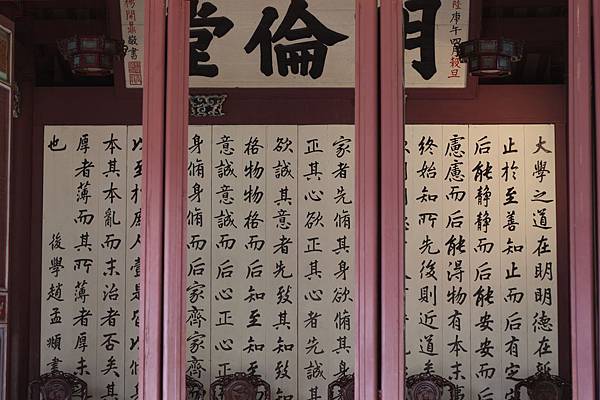 明倫堂
陸庚午四月穀旦
大學之道在明明德在新
止於至善知止而后有定
后能靜靜而后能安安而
慮慮而后能得物有本末
終始知所先後則近道矣
家者先脩其身欲脩其
正其心欲正其心者先誠
欲誠其意者先致其知
格物物格而后知至知
意誠意誠而后心正心正
身脩身脩而后家齊家齊
以至於庶人壹是皆以脩
本其本亂而末治者否矣其
厚者薄而其所薄者厚未
也 後學趙孟頫書